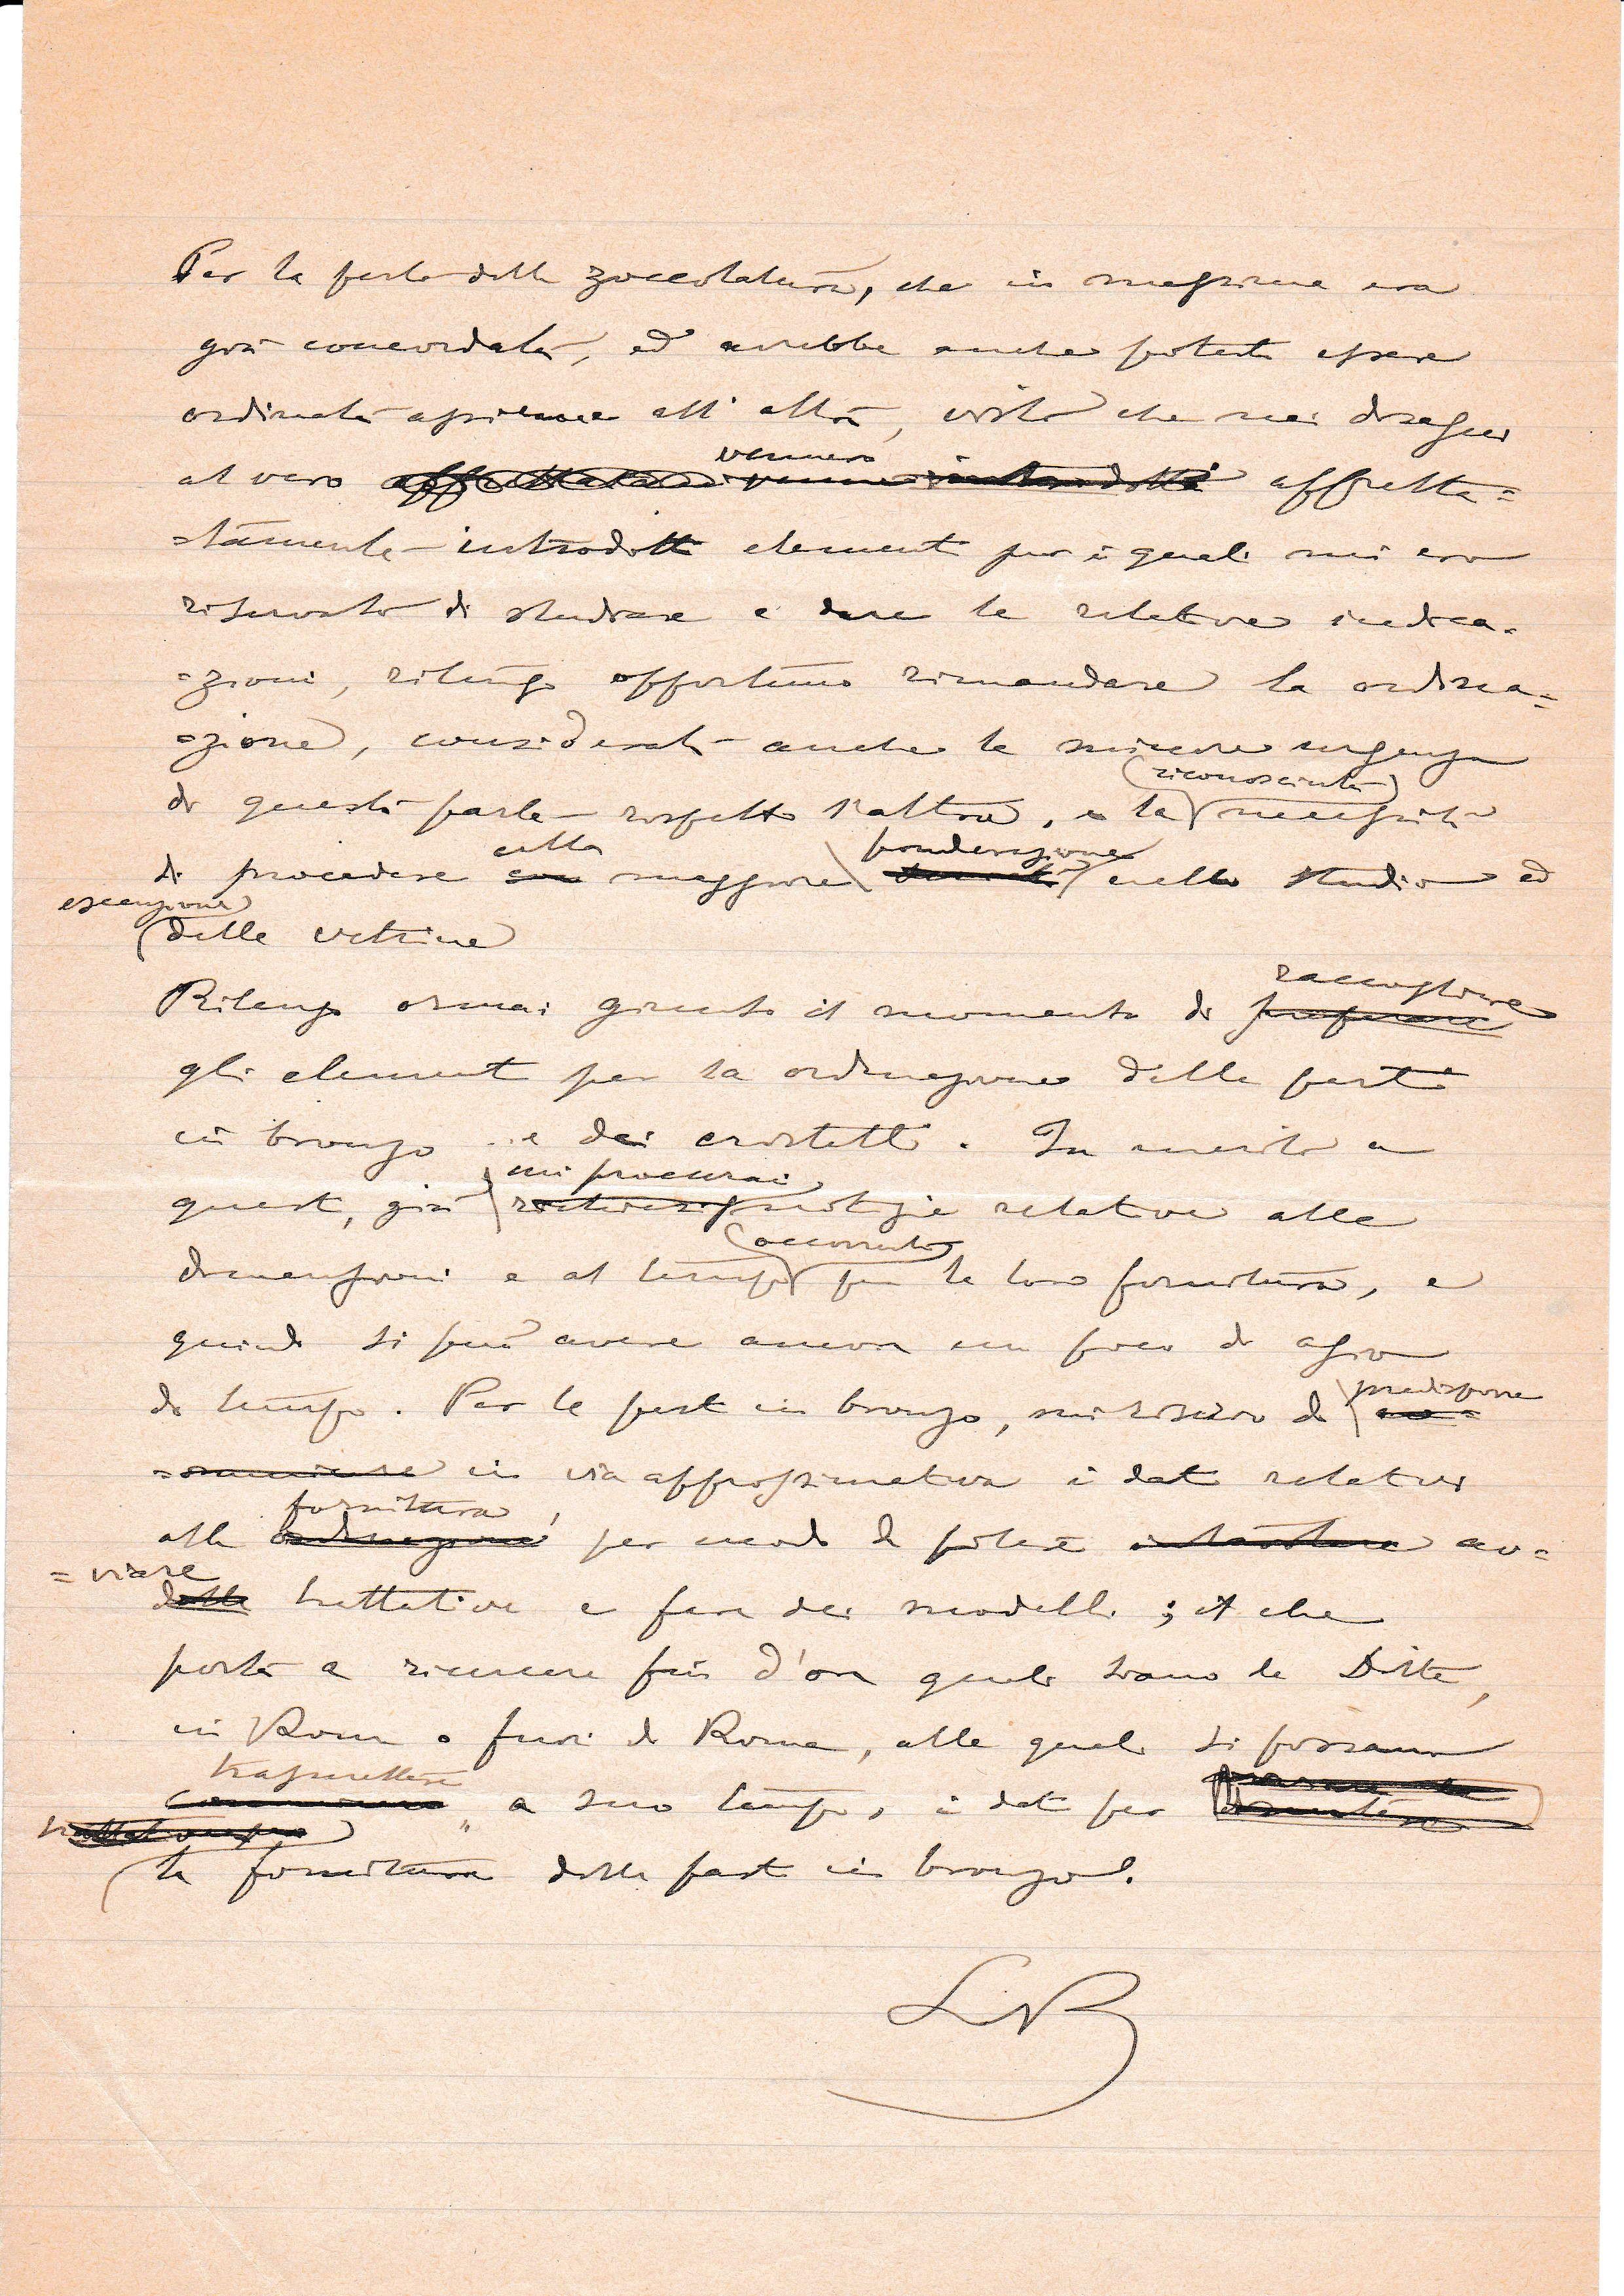 Per la parte della zoccolatura, che in massima era
già concordata, ed avrebbe anche potuto essere
ordinata assieme all'altra, visto che nei disegni
vennero
al vero affrettata=
=tamente introdotti elementi per i quali mi ero
riservato di studiare e dare le relative indica=
=zioni, ritengo opportuno rimandare la ordina=
=zione, considerata anche la minore urgenza
(riconosciuta)
di questa parte rispetto l'altra, e la necessità
colla ponderazione
di procedere con maggiore nello studio ed
esecuzione
delle vetrine
raccogliere
Ritengo ormai giunto il momento di preparare
gli elementi per la ordinazione delle parti
in bronzo e dei cristalli. In merito a
mi procurai
questi, già notizie relative alle
occorrente
dimensioni e al tempo per la loro fornitura, e
quindi si può avere ancora un poco di agio
predisporre
di tempo. Per le parti in bronzo, mi riservo di
in via approssimativa i dati relativi
fornitura,
alla ordinazione per modo di potere av=
=viare
delle trattative e fare dei modelli; il che
porta a ricercare fin d'ora quali siano le Ditte,
in Roma o fuori di Roma, alle quali si possano
trasmettere
a suo tempo, i dati per
la fornitura delle parti in bronzo.
LB